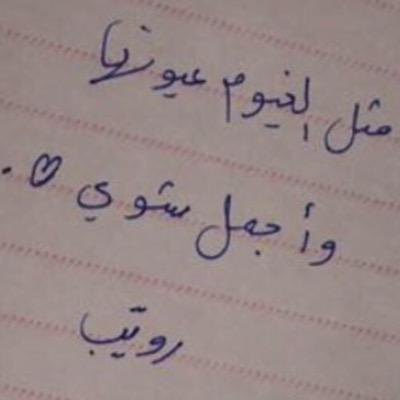 مثل الغيوم عيونها
وأجمل شوي ♡.
رويتب